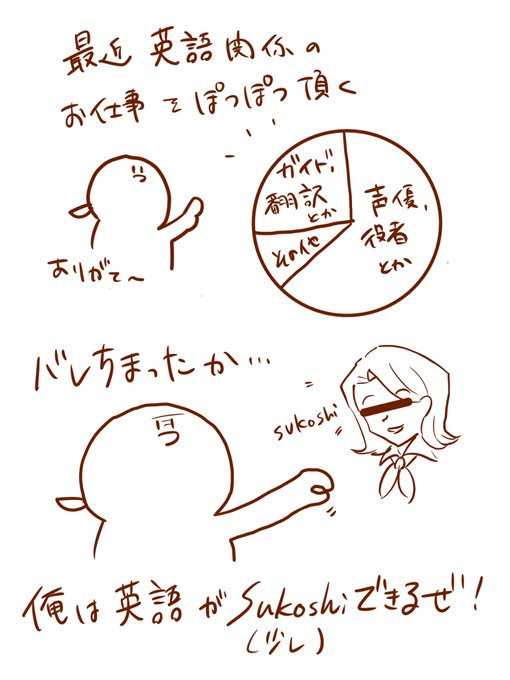 最近 英語関係の
お仕事をぽつぽつ頂く
ガイド、
翻訳
とか
声優、
役者
とか
その他
ありがて〜
バレちまったか…
sukoshi
俺は英語がSukoshiできるぜ!
(少し)